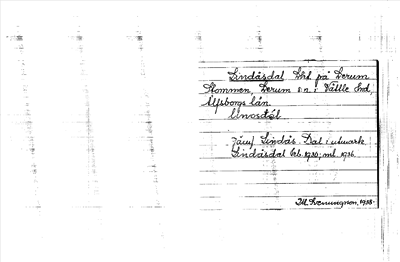 Lindåsdal Lht på Lerum
Stommen, Lerum sn. i Vättle hd,
Älfsborgs län.
Jämf Lindås Dal i utmark
Lindåsdal beb. 1930; ml. 1936.
1938.